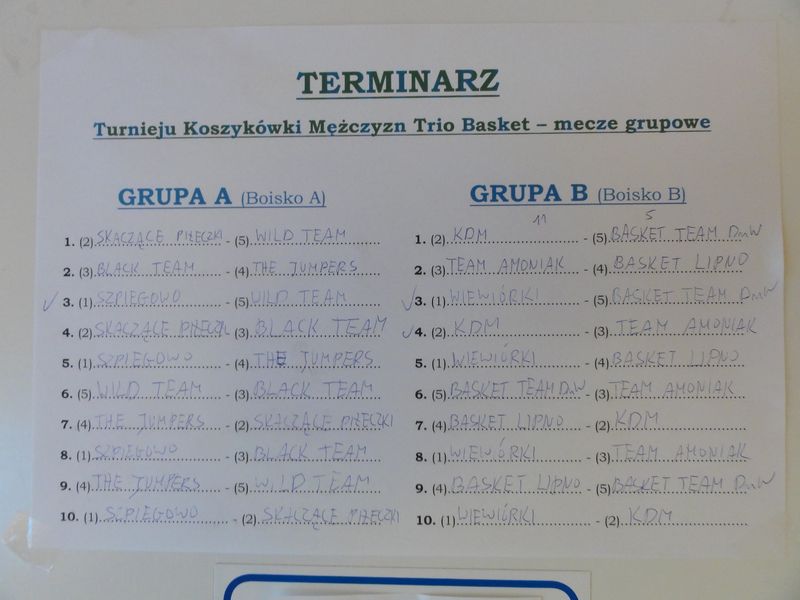 TERMINARZ
Turnieju Koszykówki Mężczyzn Trio Basket – mecze grupowe
GRUPA A (Boisko A)
1. (2) SKACZĄCE PIŁECZKI - (5) WILD TEAM
2. (3) BLACK TEAM - (4) THE JUMPERS
✓ 3. (1) SZPIEGOWO - (5) WILD TEAM
4. (2) SKACZĄCE PIŁECZKI (3) BLACK TEAM
5. (1) SZPIEGOWO - (4) THE JUMPERS
6. (5) WILD TEAM - (3) BLACK TEAM
7. (4) THE JUMPERS - (2) SKACZĄCE PIŁECZKI
8. (1) SZPIEGOWO - (3) BLACK TEAM
9. (4) THE JUMPERS - (5) WILD TEAM
10. (1) SZPIEGOWO - (2) SKACZĄCE PIŁECZKI
GRUPA B (Boisko B)
11 5
1. (2) KDM - (5) BASKET TEAM DnW
2. (3) TEAM AMONIAK - (4) BASKET LIPNO
✓ 3. (1) WIEWIÓRKI - (5) BASKET TEAM DnW
✓ 4. (2) KDM - (3) TEAM AMONIAK
5. (1) WIEWIÓRKI - (4) BASKET LIPNO
6. (5) BASKET TEAM DnW - (3) TEAM AMONIAK
7. (4) BASKET LIPNO - (2) KDM
8. (1) WIEWIÓRKI - (3) TEAM AMONIAK
9. (4) BASKET LIPNO - (5) BASKET TEAM DnW
10. (1) WIEWIÓRKI - (2) KDM